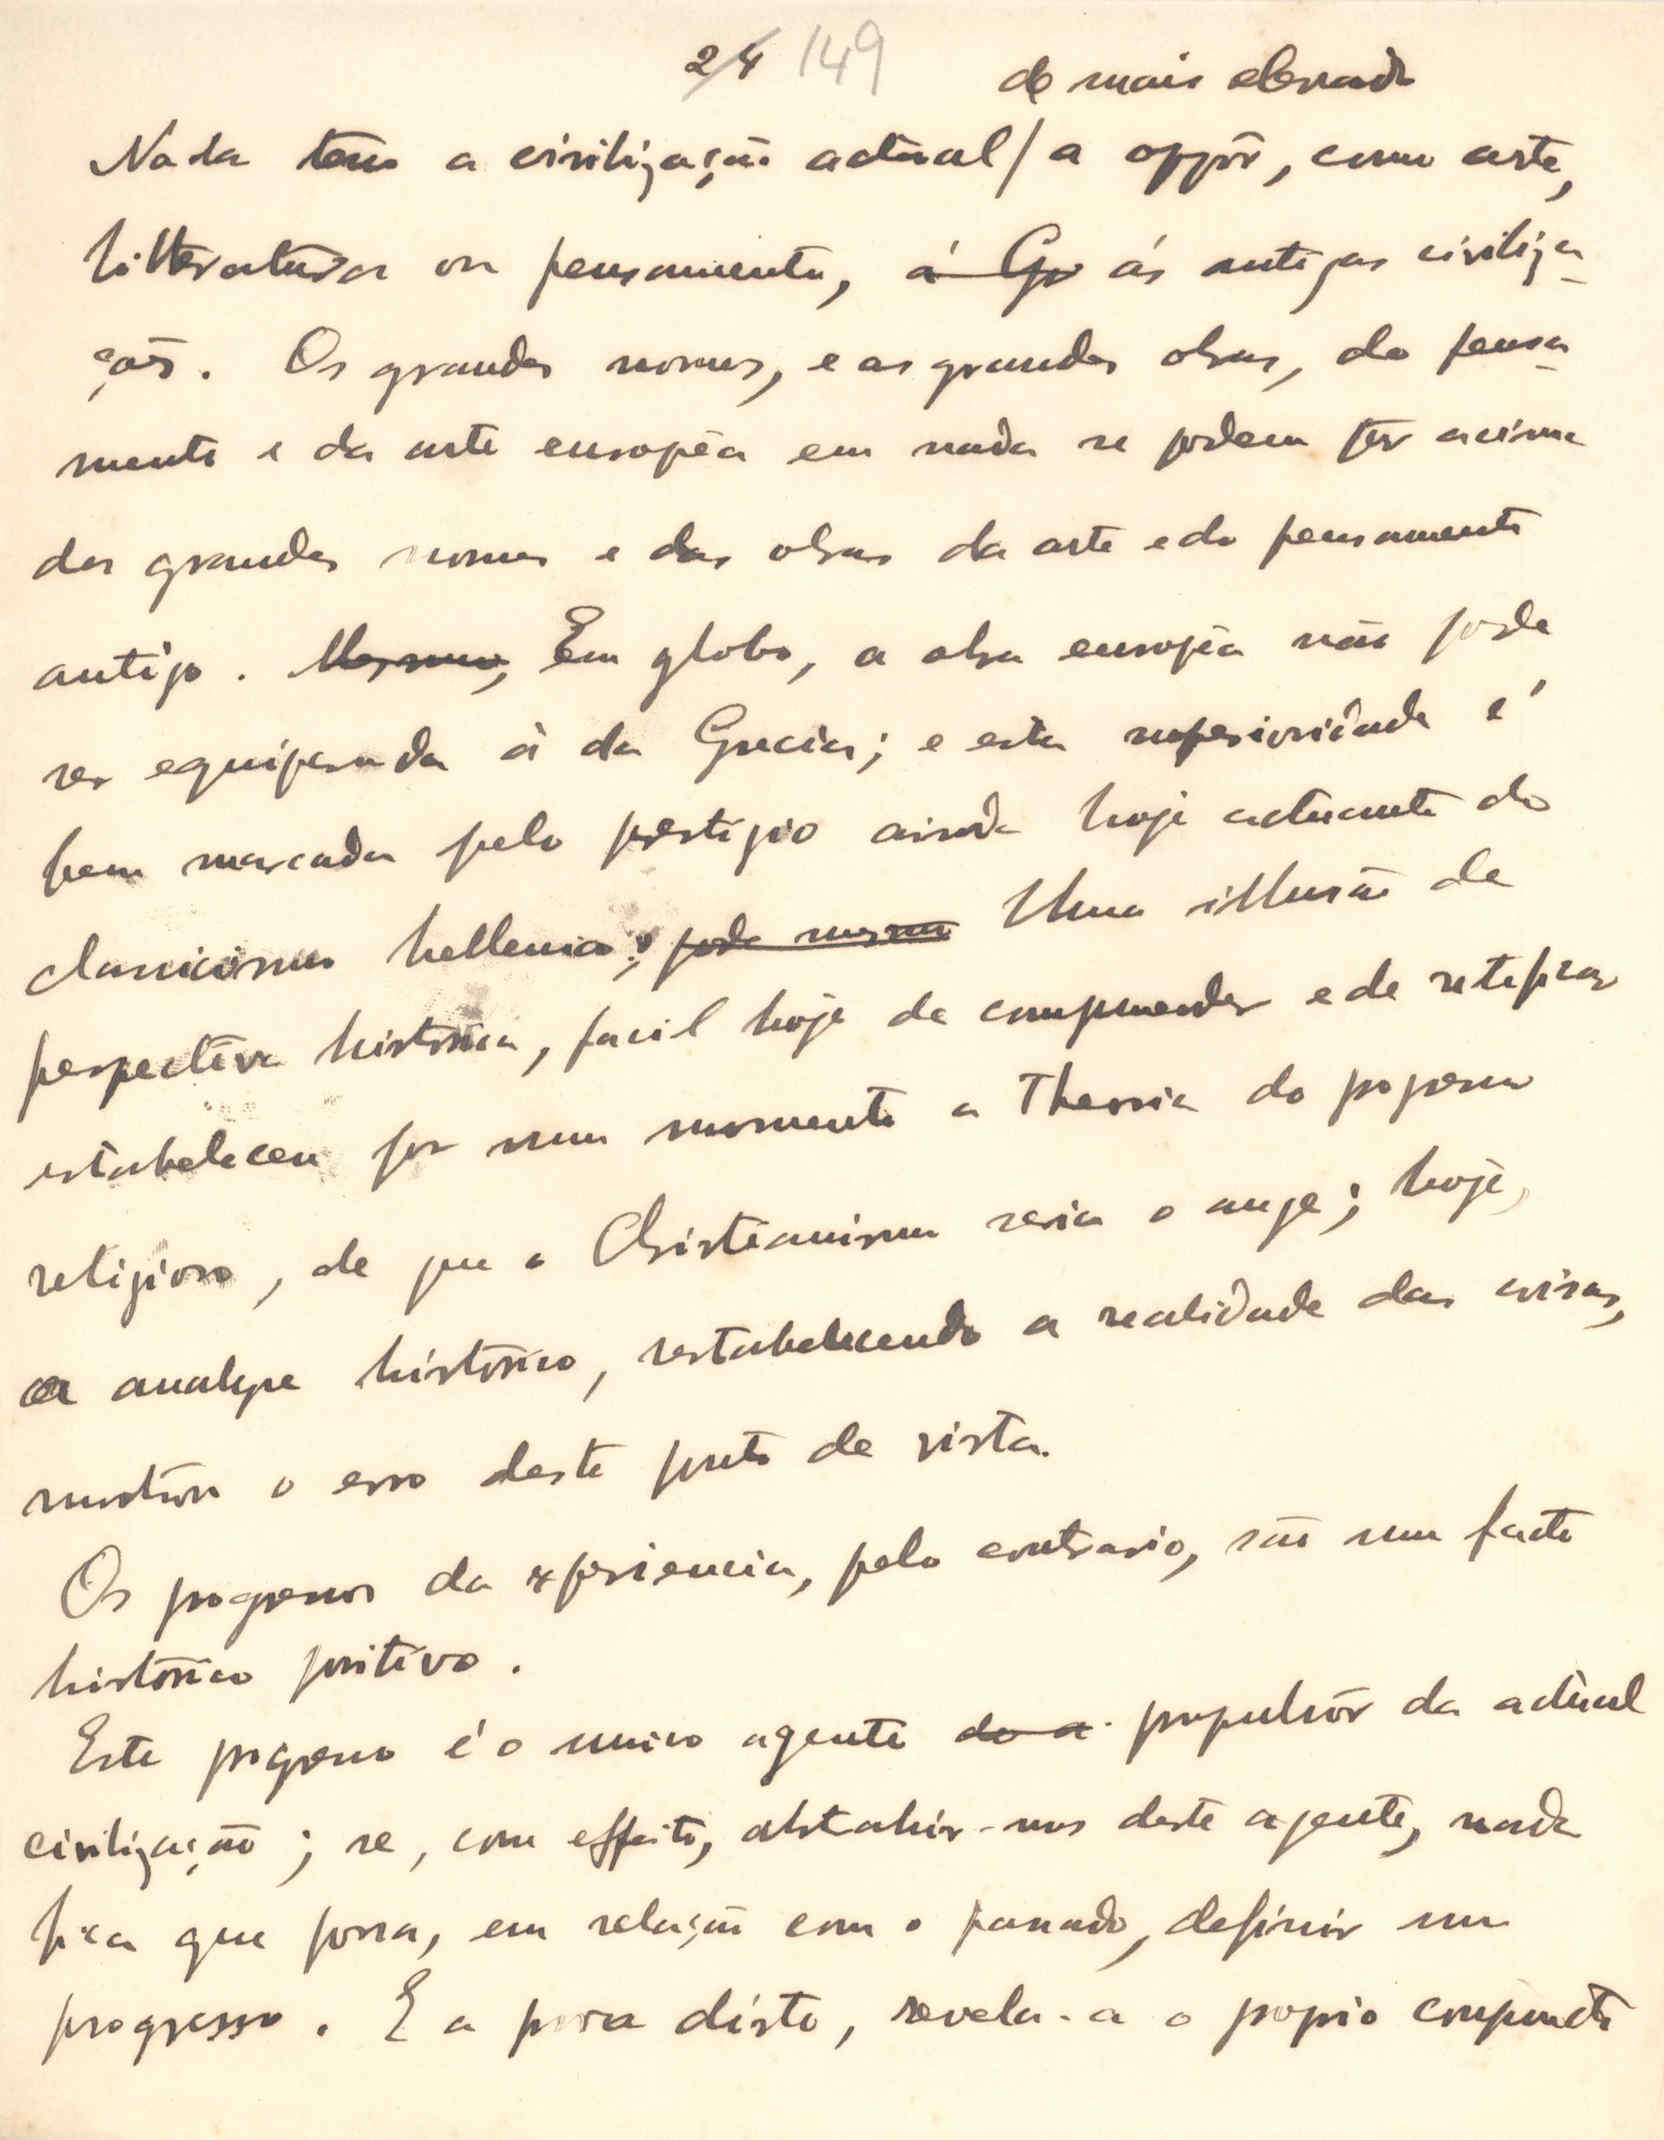 2/4 149
de mais elevado
Nada tem a civilização actual / a oppôr, como arte,
litteratura ou pensamento, á Gr ás antigas civiliza-
ções. Os grandes nomes, e as grandes obras, do pensa-
mento e da arte européa em nada se podem pôr acima
dos grandes nomes e das obras da arte e do pensamento
antigo. Mesmo, Em globo, a obra européa não pode
ser equiparada á da Grecia; e esta superioridade é
bem marcada pelo prestigio ainda hoje actuante do
classicismo hellenico; pode mesmo Uma illusão de
perspectiva historica, facil hoje de comprehender e de retificar
estabeleceu por um momento a Theoria do progresso
religioso, de que o Christianismo seria o auge; hoje,
a analyse historica, restabelecendo a realidade das coisas,
mostrou o erro deste ponto de vista.
Os progressos da experiencia, pelo contrario, são um facto
historico positivo.
Este progresso é o unico agente do a propulsôr da actual
civilização; se, com effeito, abstrahir-mos deste agente, nada
fica que possa, em relação com o passado, definir um
progresso. E a prova disto, revela-a o proprio conjuncto